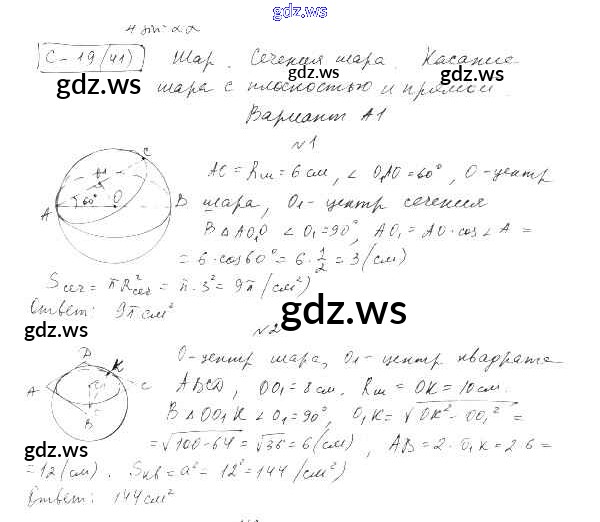 gdz.ws
4 sin 2α
С-19(41) Шар. Сечения шара. Касание
шара с плоскостью и прямой.
gdz.ws gdz.ws gdz.ws
Вариант А1
№1
AO = Rш = 6 см, ∠ O₁AO = 60°, O - центр
шара, O₁ - центр сечения
В ΔAO₁O ∠ O₁ = 90°, AO₁ = AO · cos∠A =
= 6 · cos60° = 6 · 1/2 = 3 (см)
A 60° O B C
gdz.ws gdz.ws
Sсеч = πR²сеч = π · 3² = 9π (см²)
Ответ: 9π см²
gdz.ws gdz.ws
№2
O - центр шара, O₁ - центр квадрата
ABCD, OO₁ = 8 см. Rш = OK = 10 см.
В ΔOO₁K ∠ O₁ = 90°, O₁K = √OK² - OO₁² =
= √100-64 = √36 = 6 (см), AB = 2 · O₁K = 2·6 =
= 12 (см). Sкв = a² = 12² = 144 (см²)
A D K C O₁ B
gdz.ws gdz.ws
Ответ: 144 см²